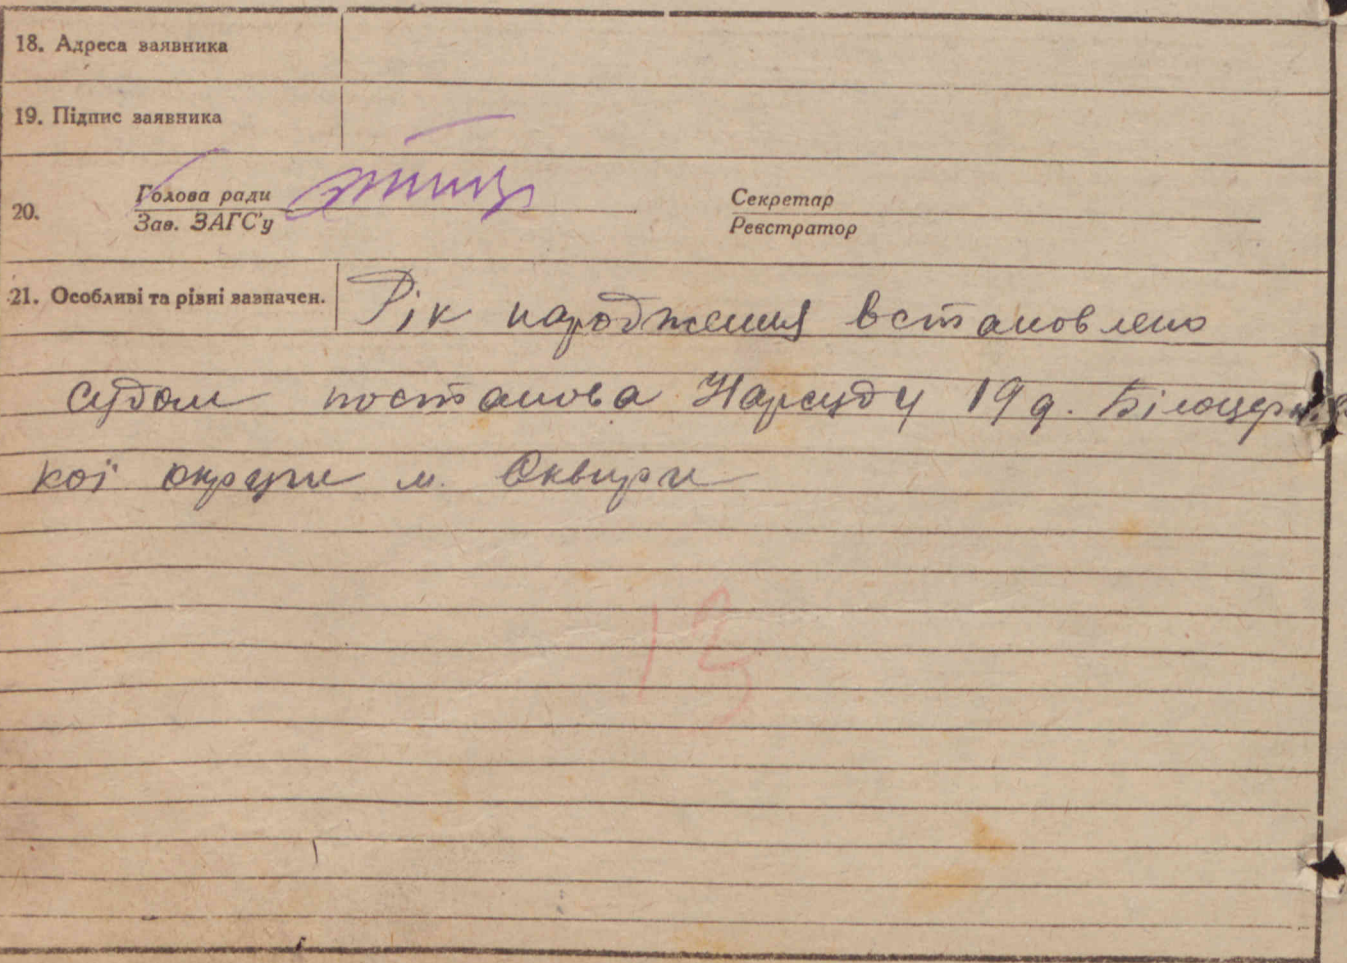 18. Адреса заявника
19. Підпис заявника
20. Голова ради
Зав. ЗАГС'у
Секретар
Реєстратор
21. Особливі та рівні зазначен.
Рік народження встановлено
судом постанова Нарсуду 19 д. Білоцерків
кої округи м. Сквири
13